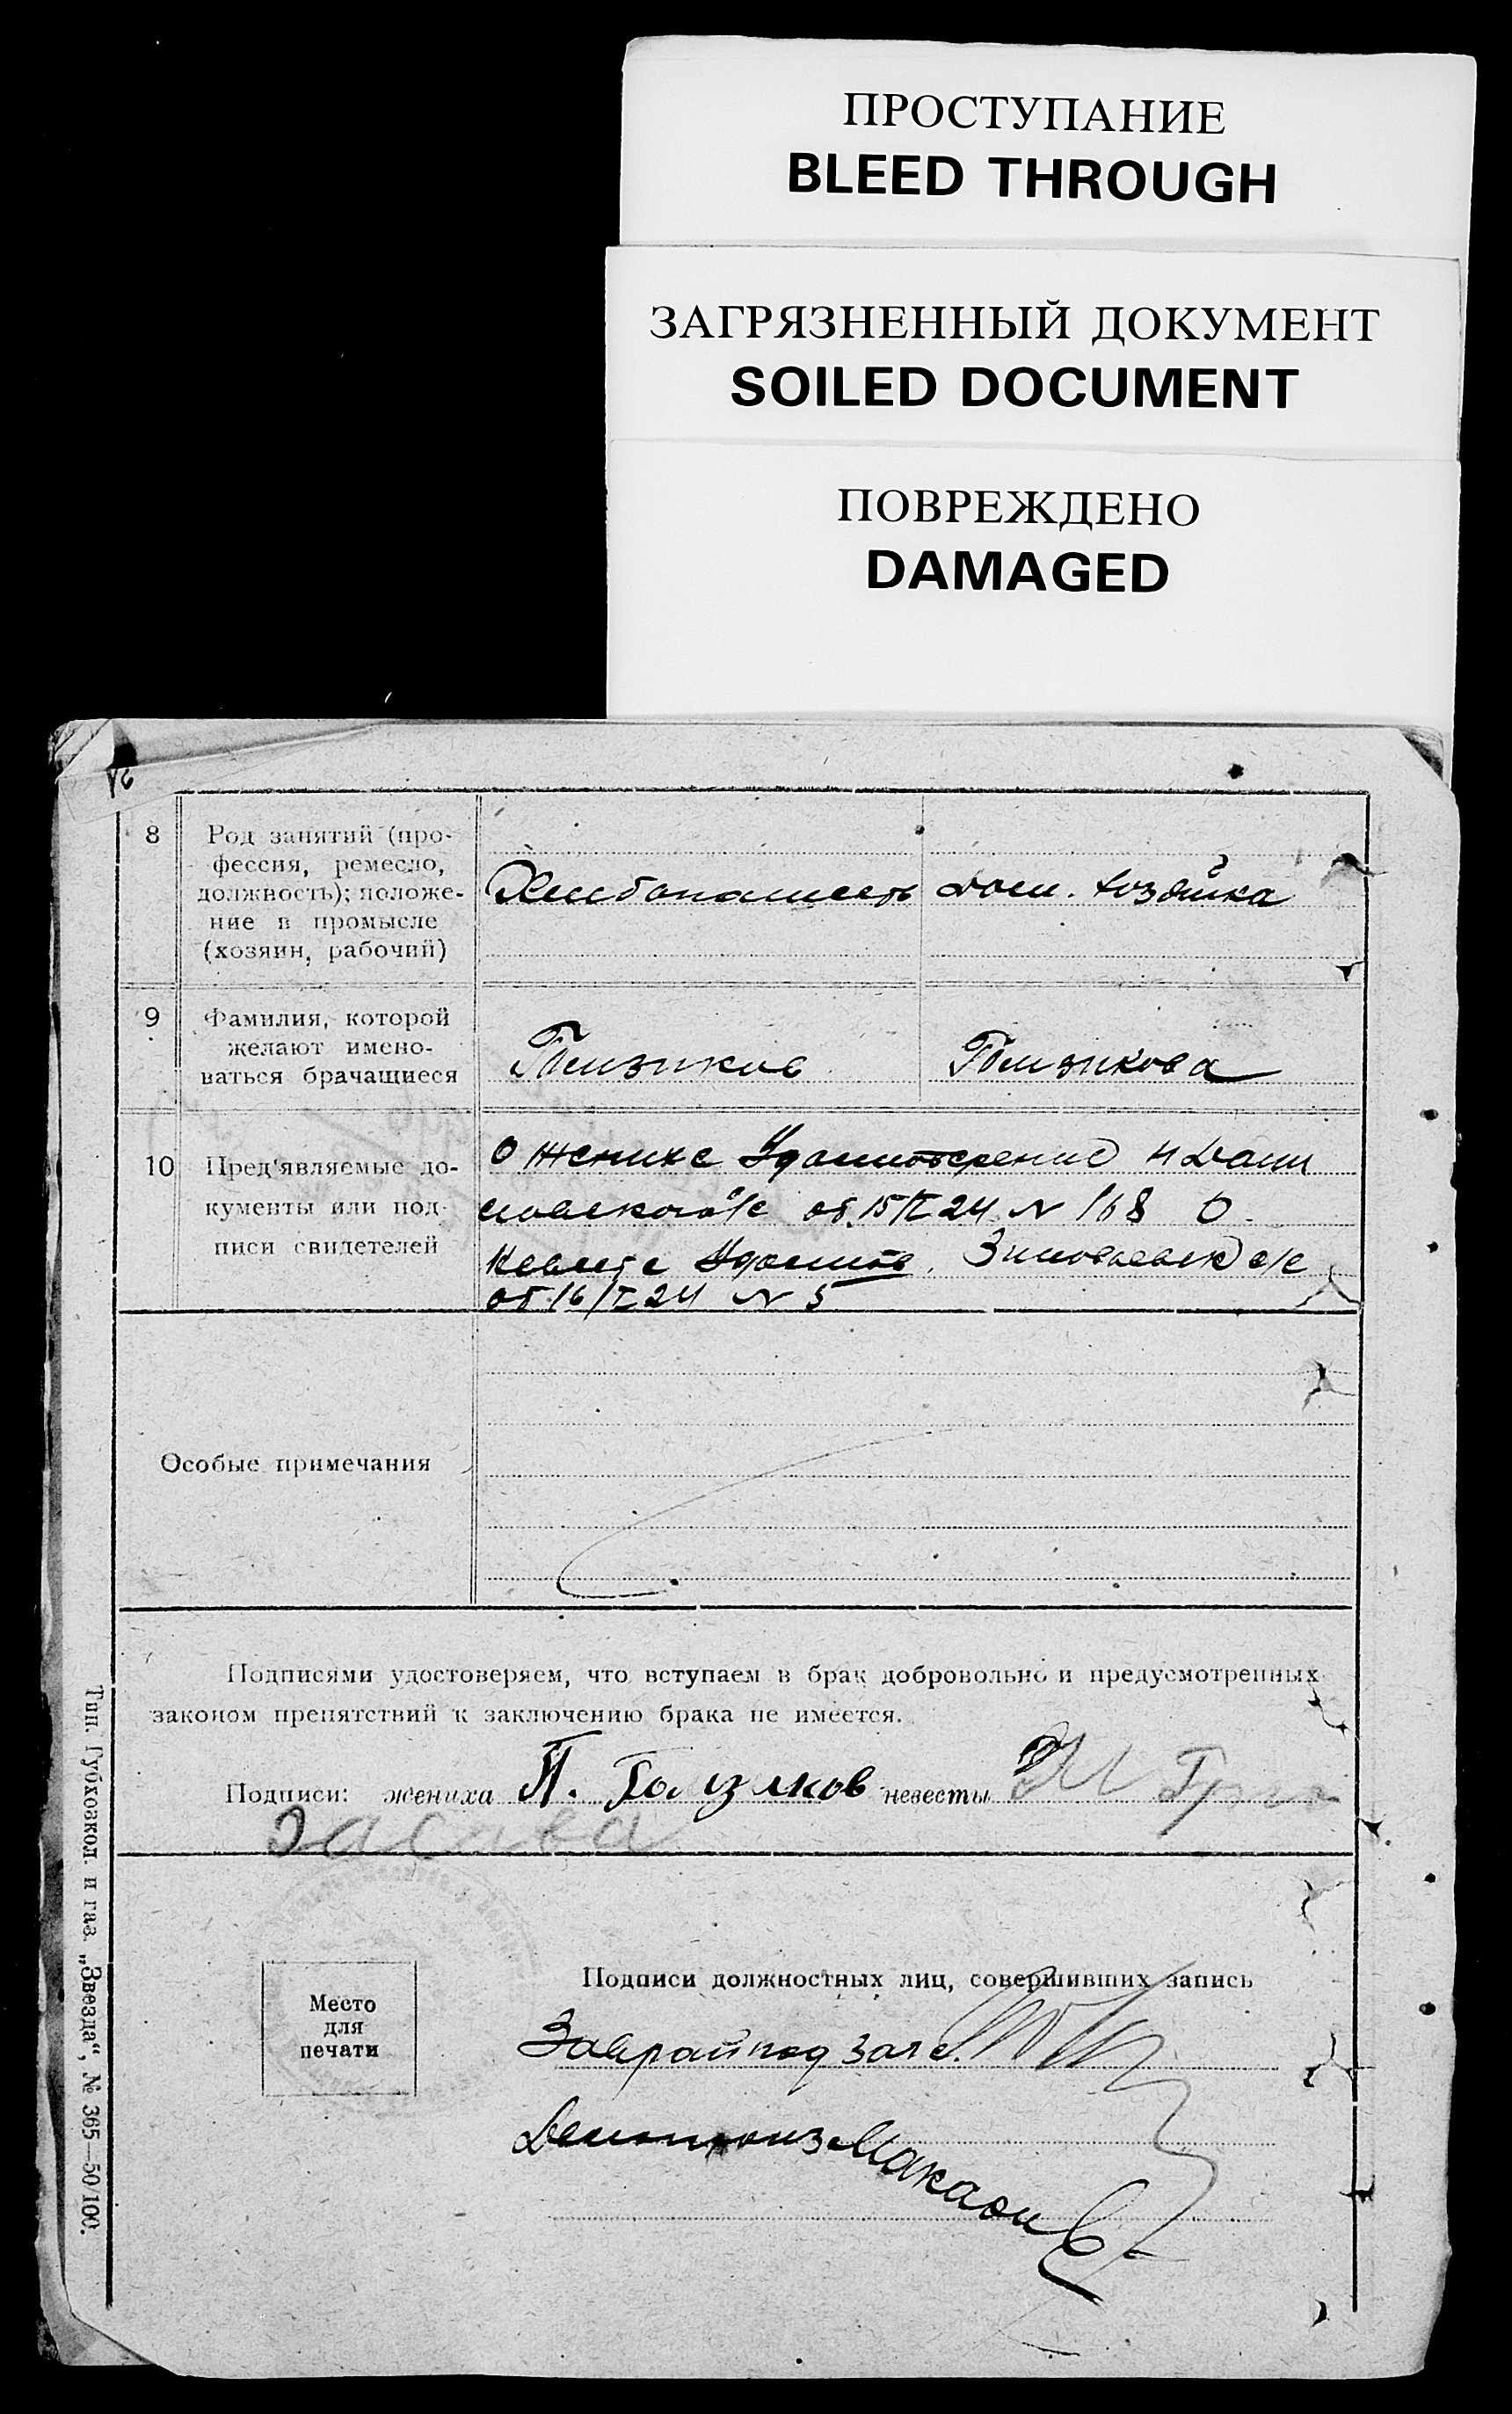 ПРОСТУПАНИЕ
BLEED THROUGH
ЗАГРЯЗНЕННЫЙ ДОКУМЕНТ
SOILED DOCUMENT
ПОВРЕЖДЕНО
DAMAGED
8
Род занятий (про-
фессия, ремесло,
должность); положе-
ние в промысле
(хозяин, рабочий)
Хлебопашест
дом. хозяйка
9
Фамилия, которой
желают имено-
ваться брачащиеся
10
Пред'являемые до-
кументы или под-
писи свидетелей
О женихе Удостоверение
от 15/I 24 № 168 О
невесте Удостов. с/с
от 16/I 24 № 5
Особые примечания
Подписями удостоверяем, что вступаем в брак добровольно и предусмотренных
законом препятствий к заключению брака не имеется.
Подписи: жениха П. невесты
Место
для
печати
Подписи должностных лиц, совершивших запись
Заврайподзагс.
Делопроиз
Тип. Губхозкол. и газ. „Звезда“, № 365—50/100.